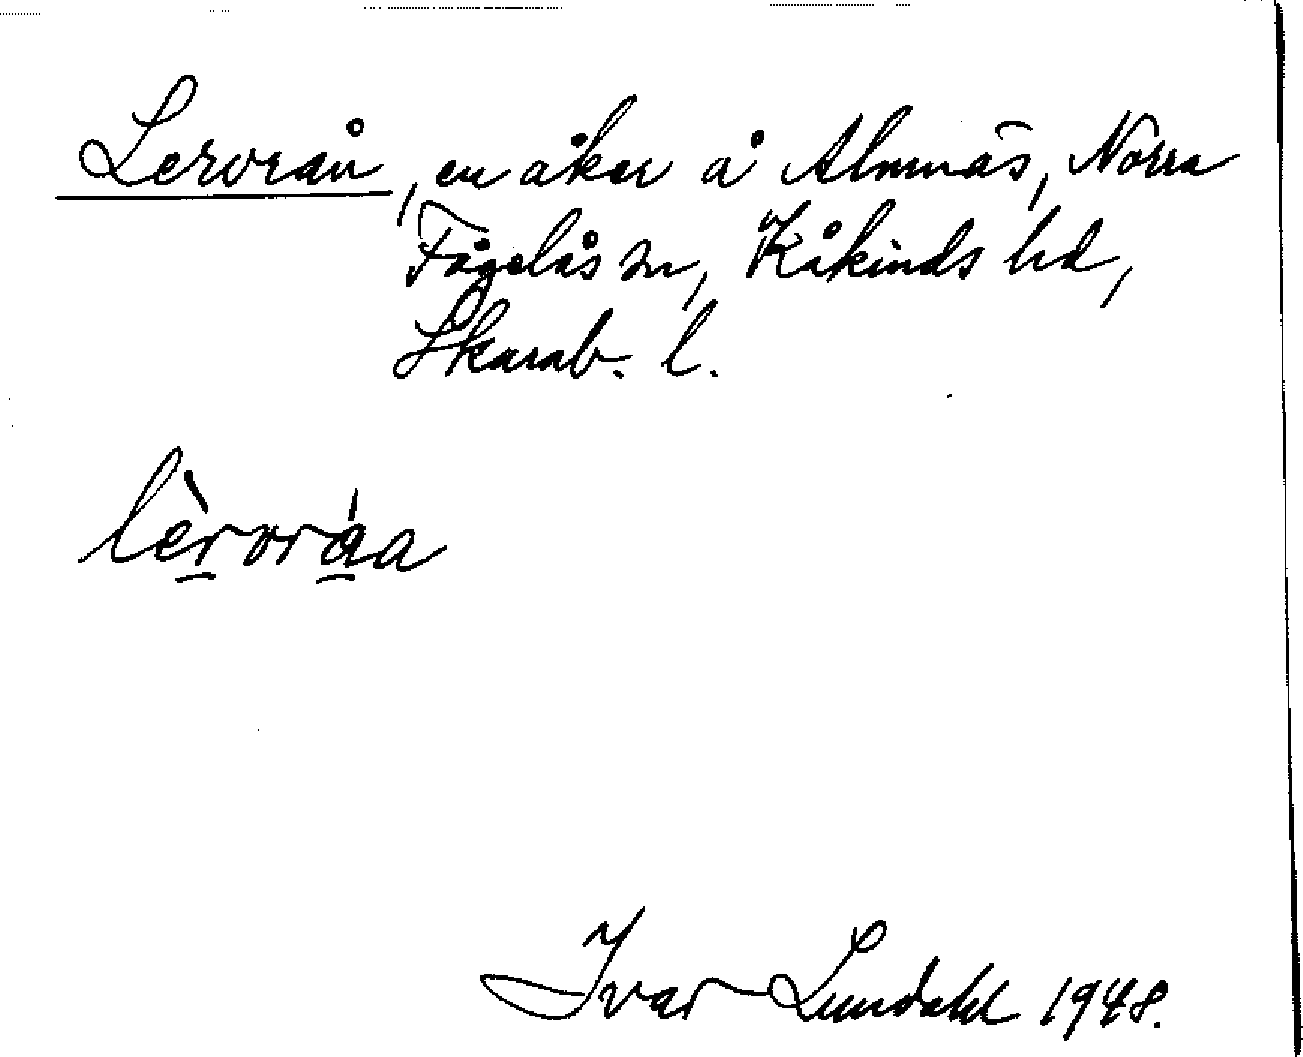 Lervrån, en åker å Almnäs, Norra
Fågelås sn, Kåkinds hd,
Skarab. l.
lèrvráa
Ivar Lundahl 1948.